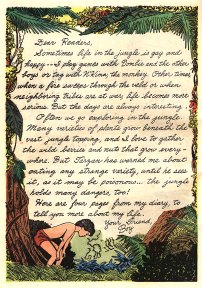 Dear Readers,
Sometimes life in the jungle is gay and
happy---I play games with Dombie and the other
boys or tag with N'Kima, the monkey. Other times,
when a fire sweeps through the veld or when
neighboring tribes are at war, life becomes more
serious. But the days are always interesting.
Often we go exploring in the jungle.
Many varieties of plants grow beneath the
vast jungle topping, and I love to gather
the wild berries and nuts that grow every-
where. But Tarzan has warned me about
eating any strange variety, until he sees
it, as it may be poisonous... the jungle
holds many dangers, too!
Here are four pages from my diary, to
tell you more about my life.
Your friend,
Boy